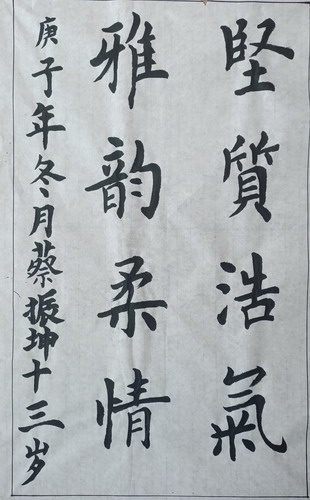 堅質浩氣
雅韵柔情
庚子年冬月蔡振坤十三岁